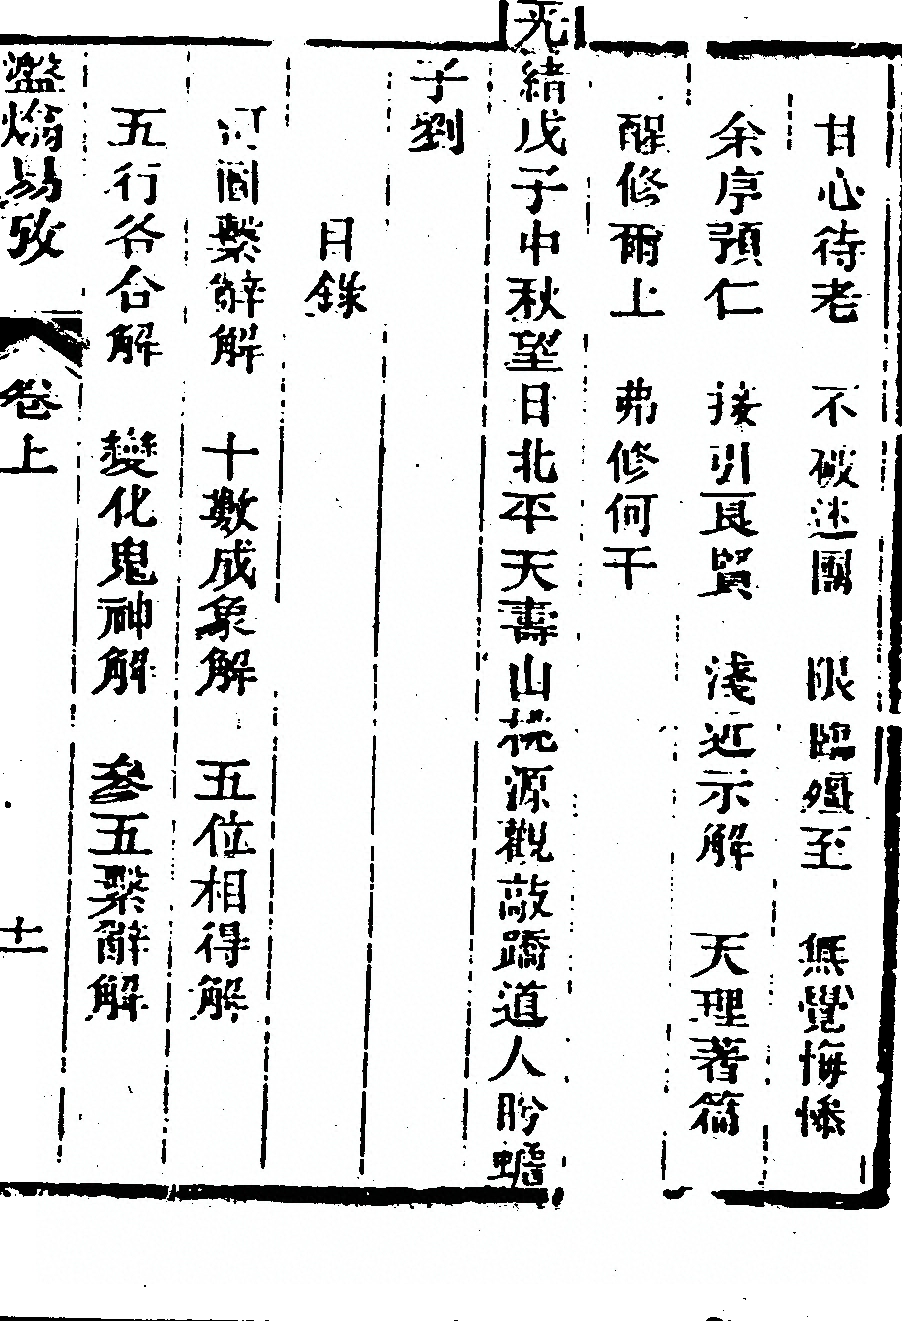 甘心待老　不破迷團　限臨殭至　無覺悔悕
余序預仁　接引良賢　淺近示解　天理著篇
醒修爾上　弗修何干
光緒戊子中秋望日北平天壽山桃源觀敲蹻道人盼蟾
子劉
目錄
河圖繫辭解　十數成象解　五位相得解
五行各合解　變化鬼神解　參五繫辭解
易攷　卷上　十一